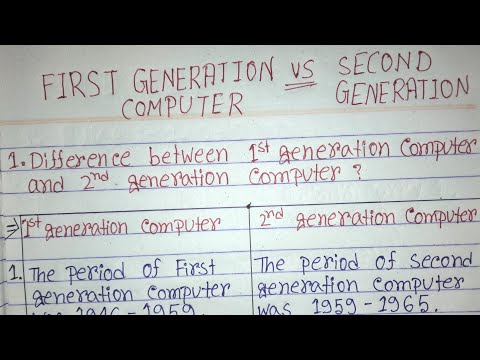 FIRST GENERATION VS SECOND
COMPUTER GENERATION
1. Difference between 1st generation computer
and 2nd generation computer ?
⇒ 1st generation computer
2nd generation computer
1. The period of First
generation computer
was 1946-1959
The period of second
generation computer
was 1959-1965.